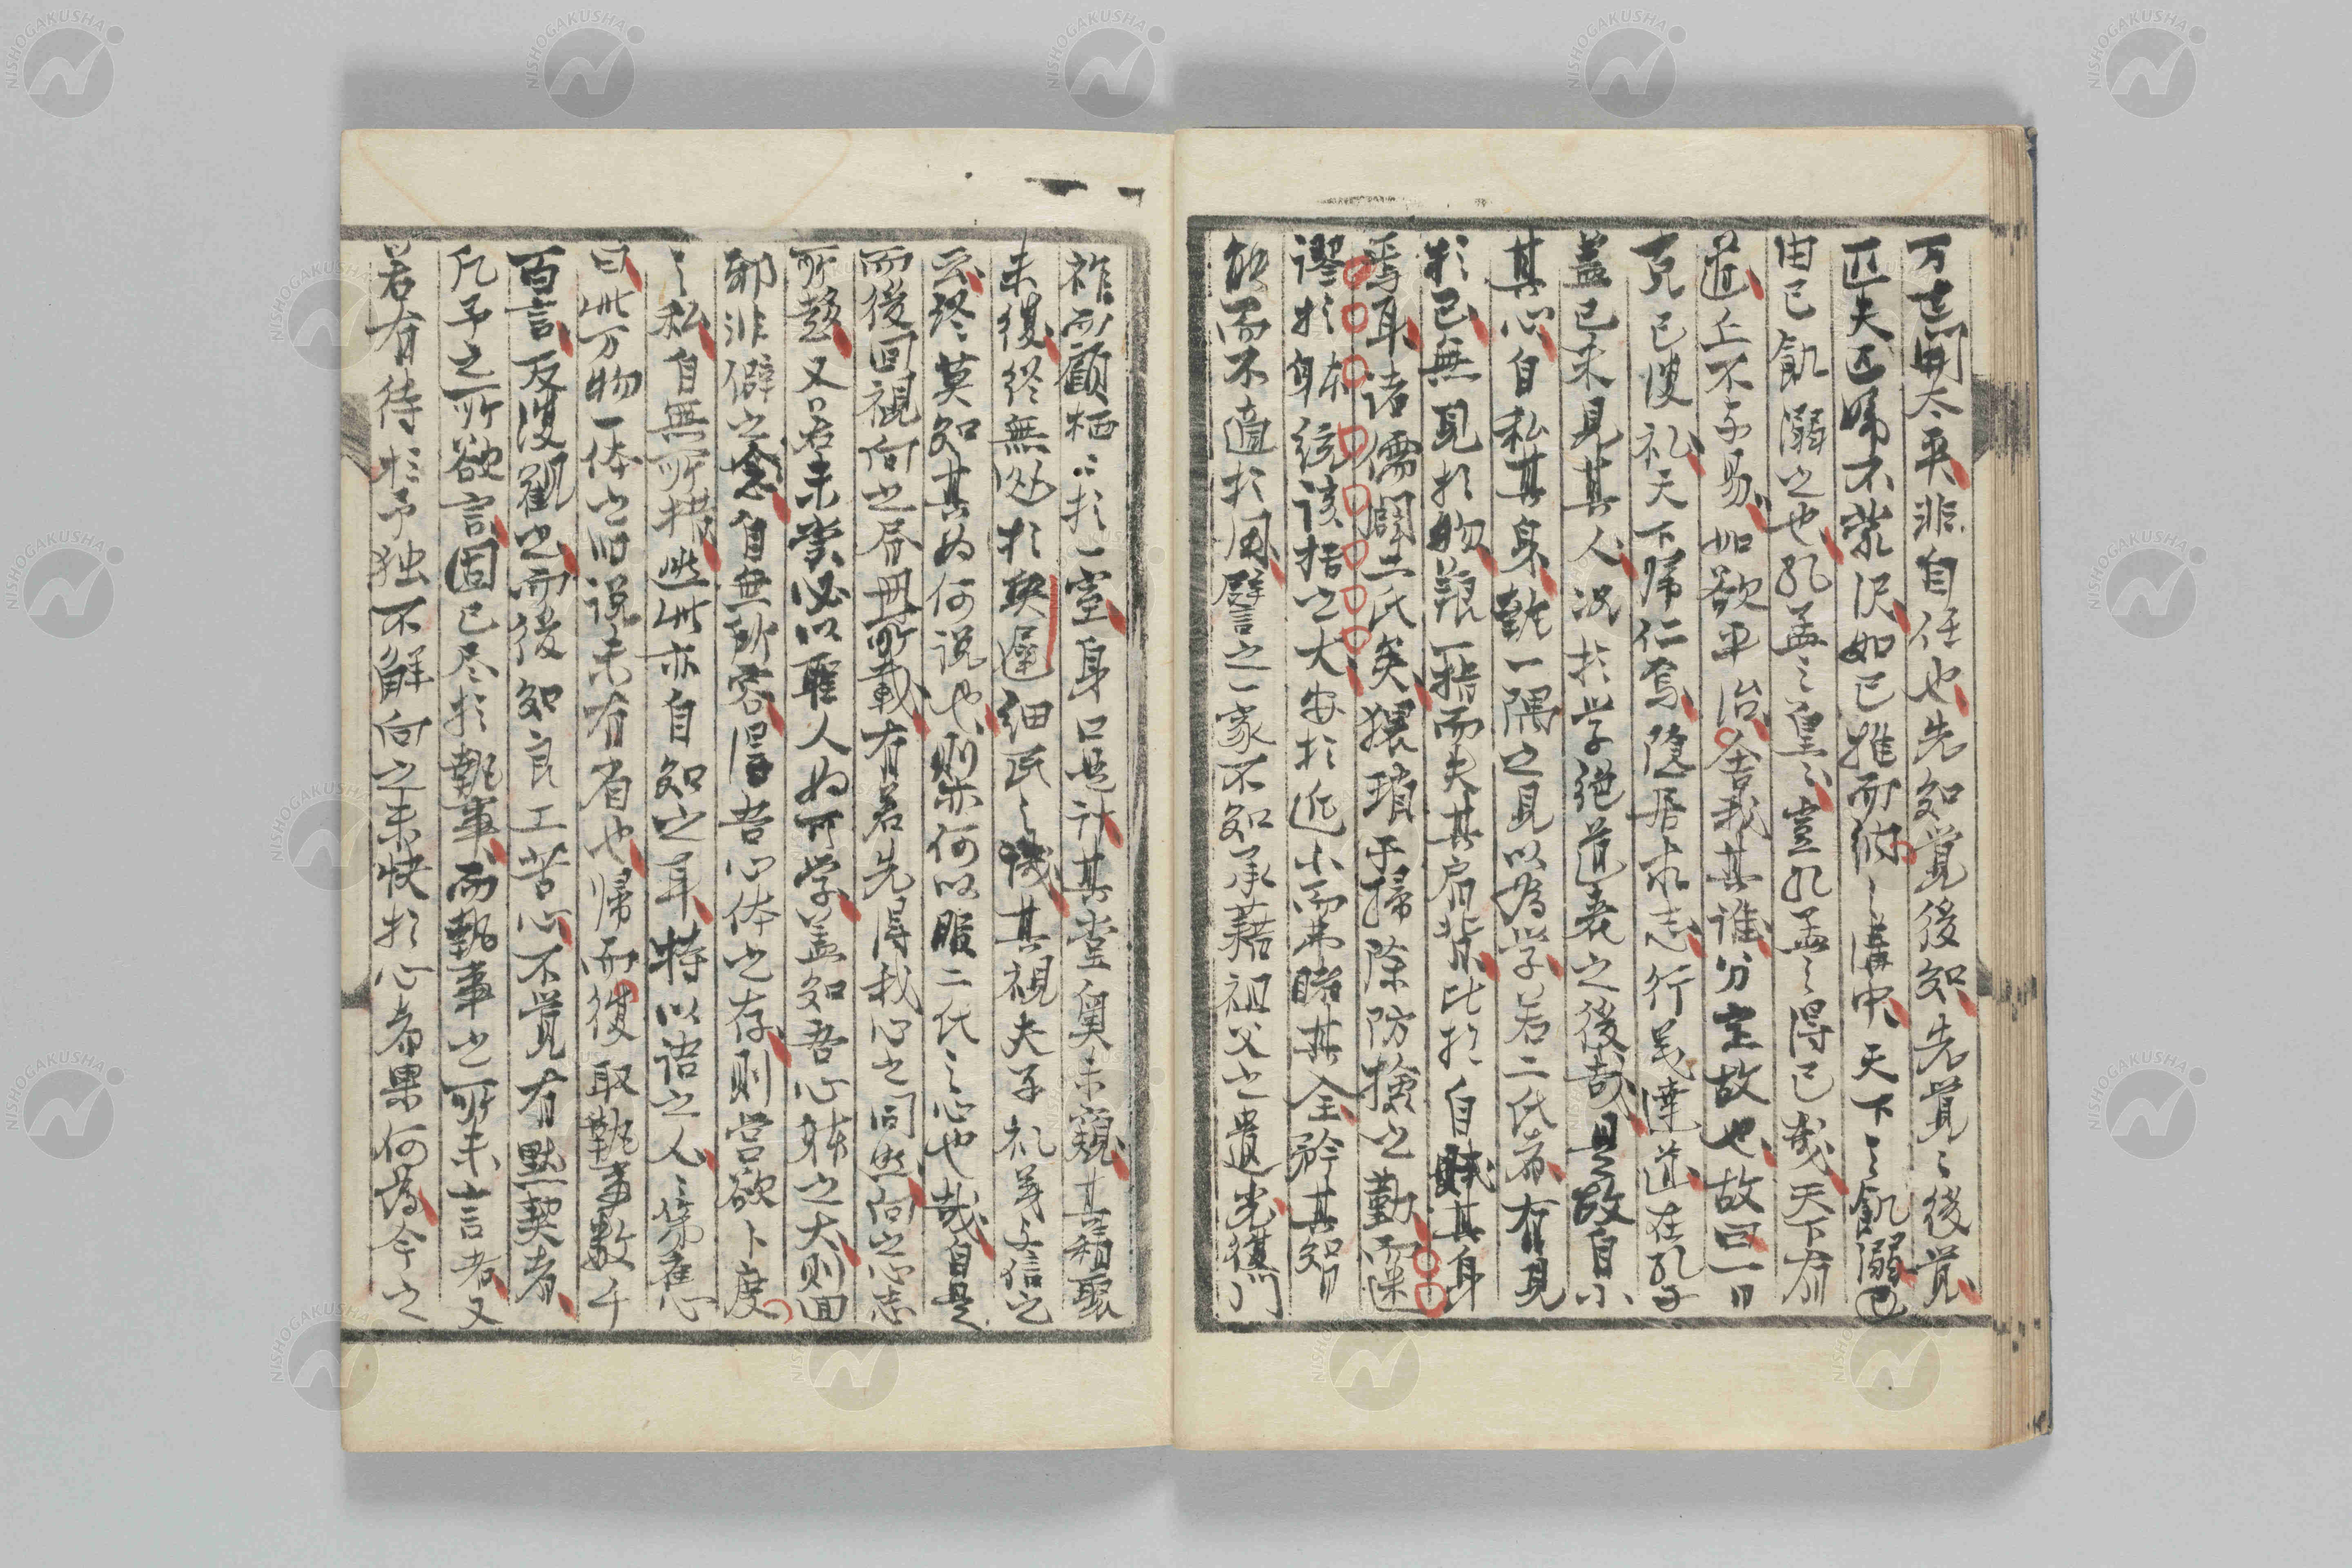 万世開太平非自任也先知覚後知先覚々後覚
匹夫匹婦不蒙沢如已推而納々溝中天下々飢溺已
由已飢溺之也孔孟之皇々豈孔孟之得已哉天下有
道丘不与易如欲平治舍我其誰分定故也故曰一日
克己復礼天下帰仁焉隠居求志行義達道在孔子
蓋已未見其人況於学絶道喪之後哉且故自小
其心自私其身執一隅之見以為学若二氏者有見
於己無見於物養一指而失其肩背比於自賊其身
焉耳諸儒闢二氏矣猥瑣于掃除防検之勤而迷
謬於身体統該括之大安於近小而弗睹其全矜其知
能而不適於用譬之一家不知承藉祖父之遺光復門
祚而顧栖々於一室身口是計其堂奥未窺其積聚
未復終無処於契遅細民之譏其視夫子礼義与信之
云終莫知其為何説也則亦何以服二氏之心也哉自是
而後回視向之昏冊所載有若先得我心之同然向之志
所趍又若未嘗必以聖人為可学蓋知吾心体之大則回
邪非僻之念自無所容得吾心体之存則営欲卜度
之私自無所措然此亦自知之耳特以語之人人舊
曰此万物一体之旧説未有省也帰而復取執事数千
百言反復観之而後知良工苦心不覚有黙契者
凡予之所欲言固已尽於執事而執事之所未言者又
若有待於予独不解向之未快於心者果何為今之